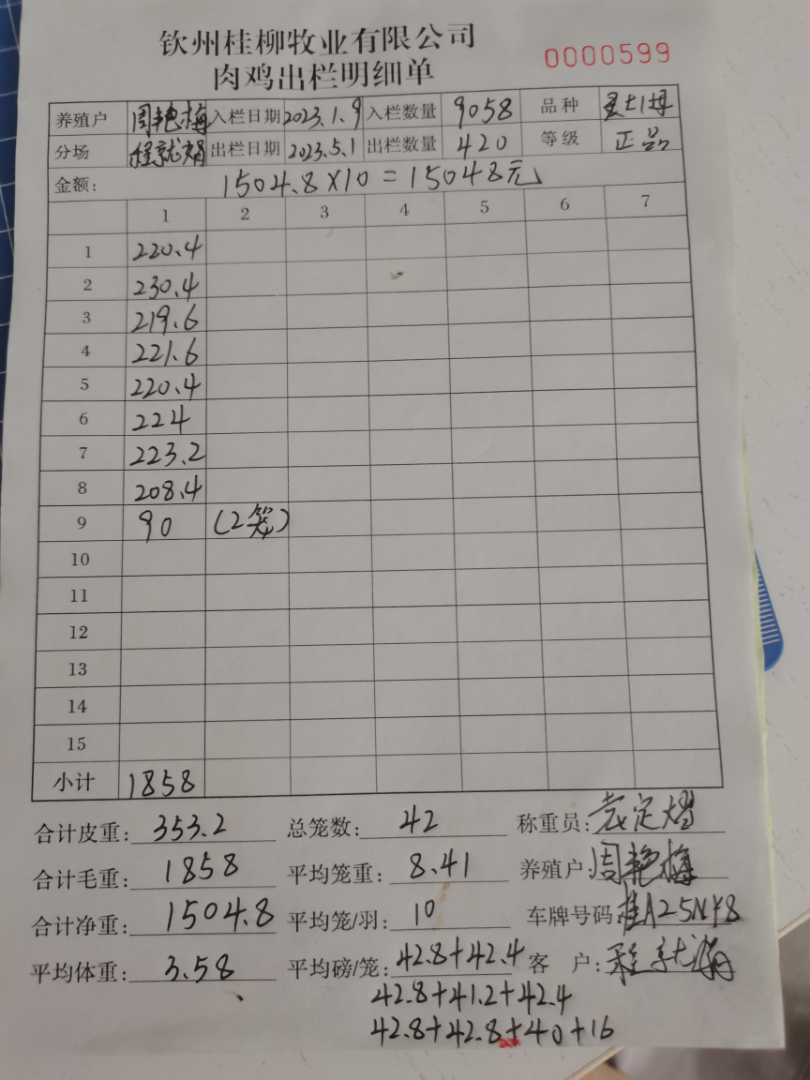 钦州桂柳牧业有限公司
肉鸡出栏明细单 0000599
养殖户 周艳梅 入栏日期 2023.1.9 入栏数量 9058 品种
分场 出栏日期 2023.5.1 出栏数量 420 等级 正品
金额: 1504.8×10=15048元
1 2 3 4 5 6 7
1 220.4
2 230.4
3 219.6
4 221.6
5 220.4
6 224
7 223.2
8 208.4
9 90 (2笼)
10
11
12
13
14
15
小计 1858
合计皮重: 353.2 总笼数: 42 称重员:
合计毛重: 1858 平均笼重: 8.41 养殖户: 周艳梅
合计净重: 1504.8 平均笼/羽: 10 车牌号码 桂A25NY8
平均体重: 3.58 平均磅/笼: 42.8+42.4 客 户:
42.8+41.2+42.4
42.8+42.8+40+16